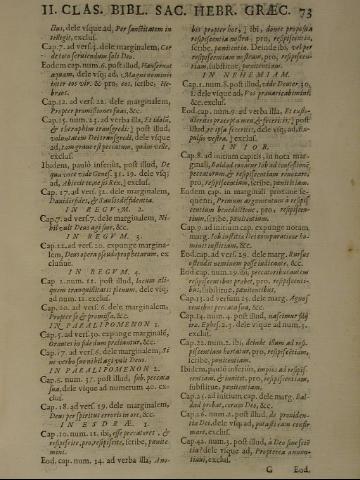 II. CLAS. BIBL. SAC. HEBR. GRÆC. 73
tius, dele vsque ad, Per sanctitatem in
tellegis, exclus.
Cap. 7. ad vers. 4. dele marginalem, Cor
de toto serviendum soli Deo.
Eodem cap. num. 16. post illud,
aquam, dele vsq; ad, Magni nominis
inter eos vir. & pro, eos, scribe, He-
breos.
Cap. 12. ad vers. 22. dele marginalem,
Propter promissionem suam, &c.
Cap. 15. num. 23. ad verba illa, Et idola,
& theraphim transgredi; post illud,
voluntatem Dei transgredi, dele vsque
ad, tam graue est peccatum, quàm velle,
exclus.
Ibidem, paulò inferius, post illud, De
qua voce vide Genes. 31. 19. dele vsq;
ad, Abiecit te, ne sis Rex, exclus.
Cap. 17. ad vers. 32. dele marginalem,
Dauidis fides, & Saulis diffidentia.
IN REGVM. 2.
Cap. 7. ad vers. 7. dele marginalem, Ni-
hil vult Deus agi sine, &c.
IN REGVM. 3.
Cap. 22. ad vers. 20. expunge margina-
lem, Deus opera pseudoprophetarum, ex
clusiue.
IN REGVM. 4.
Cap. 2. num. 11. post illud, locum ali-
quem tranquillitatis plenum, dele vsq;
ad num. 12. exclus.
Cap. 20. ad vers. 6. dele marginalem,
Propter se & promissa, &c.
IN PARALIPOMENON 1.
Cap. 5. ad vers. 20. expunge marginalē,
Orantes in fide sum prodiuntur, &c.
Cap. 17. ad vers. 2. dele marginalem, Si
in verbo suo nihil agi vult Deus.
IN PARALIPOMENON 2.
Cap. 6. num. 37. post illud, sub, peccata
sua, dele vsque ad numerum 40. ex-
clus.
Cap. 18. ad vers. 19. dele marginalem,
Deus per spiritus erroris in eo, &c.
IN ESDRÆ. 1.
Cap. 10. num. 11. ibi, esse peccatores, &
respiscite, pro, respiscite, scribe, pœnite-
mini.
Eod. cap. num. 14. ad verba illa, Ano-
bis propter hoc, ] ibi, donec proposita
respiscentia nostra, pro, respiscentia,
scribe, pœnitentia. Deinde ibi, vel per
respiscentiam nostram, pro, respiscen-
tiam, substitue, pœnitentiam.
IN NEHEMIAM.
Cap. 1. num. 8. post illud, vide Deuter. 30.
1. dele vsque ad, Pos prauaricabimini,
&c. exclus.
Eod. cap. num. 9. ad verba illa, Et custo-
dieritis præcepta mea & feceritis,] post
illud, & feceritis; dele vsq; ad, Re-
pulso vestra, ] exclus.
IN IOB.
Cap. 8. ad initium capitis, in nota mar-
ginali,
peccatorum, & respiscentiam
pro, respiscentiam, scribe, pœnitentiam.
Eodem cap. in marginali pœnitentiæ se-
quente, Primum argumentum à respis-
centium benedictione, pro, respiscen-
tium, scribe, pœnitentium.
Cap. 9. ad initium cap. expunge notam
marg. Iob iustitia Dei comparatione ho-
minis iustitiam, &c.
Eod. cap. ad vers. 29. dele marg. Rursus
ostendit neminem posse iudicari, &c.
Eod. cap. num. 29. ibi, peccatoribus autem
respiscentibus præbet, pro, respiscenti-
bus, substitue, pœnitentibus.
Cap. 13. ad versum 25. dele marg. Agnos
ceretur peccata sua, &c.
Cap. 14. num. 4. post illud, nascimur filij
iræ. Ephes. 2. 3. dele vsque ad num. 5.
exclus.
Cap. 22. num. 2. ibi, deinde illum ad res-
piscentiam hortatur, pro, respiscentiam,
scribe, pœnitentiam.
Ibidem, paulò inferius, impios ad respis-
centiam, & inuitat, pro, respiscentiam,
substitue, pœnitentiam.
Cap. 25. ad initium cap. dele marg. Bal-
dad probat, coram Deo, &c.
Cap. 26. num. 2. post illud, de prouiden-
tia Dei, dele vsque ad, putasti eam confir-
mari, exclus.
Cap. 42. num. 3. post illud, à Deo sanctè
? dele vsque ad, Propterea annun-
tiaui, exclus.
G Eod.